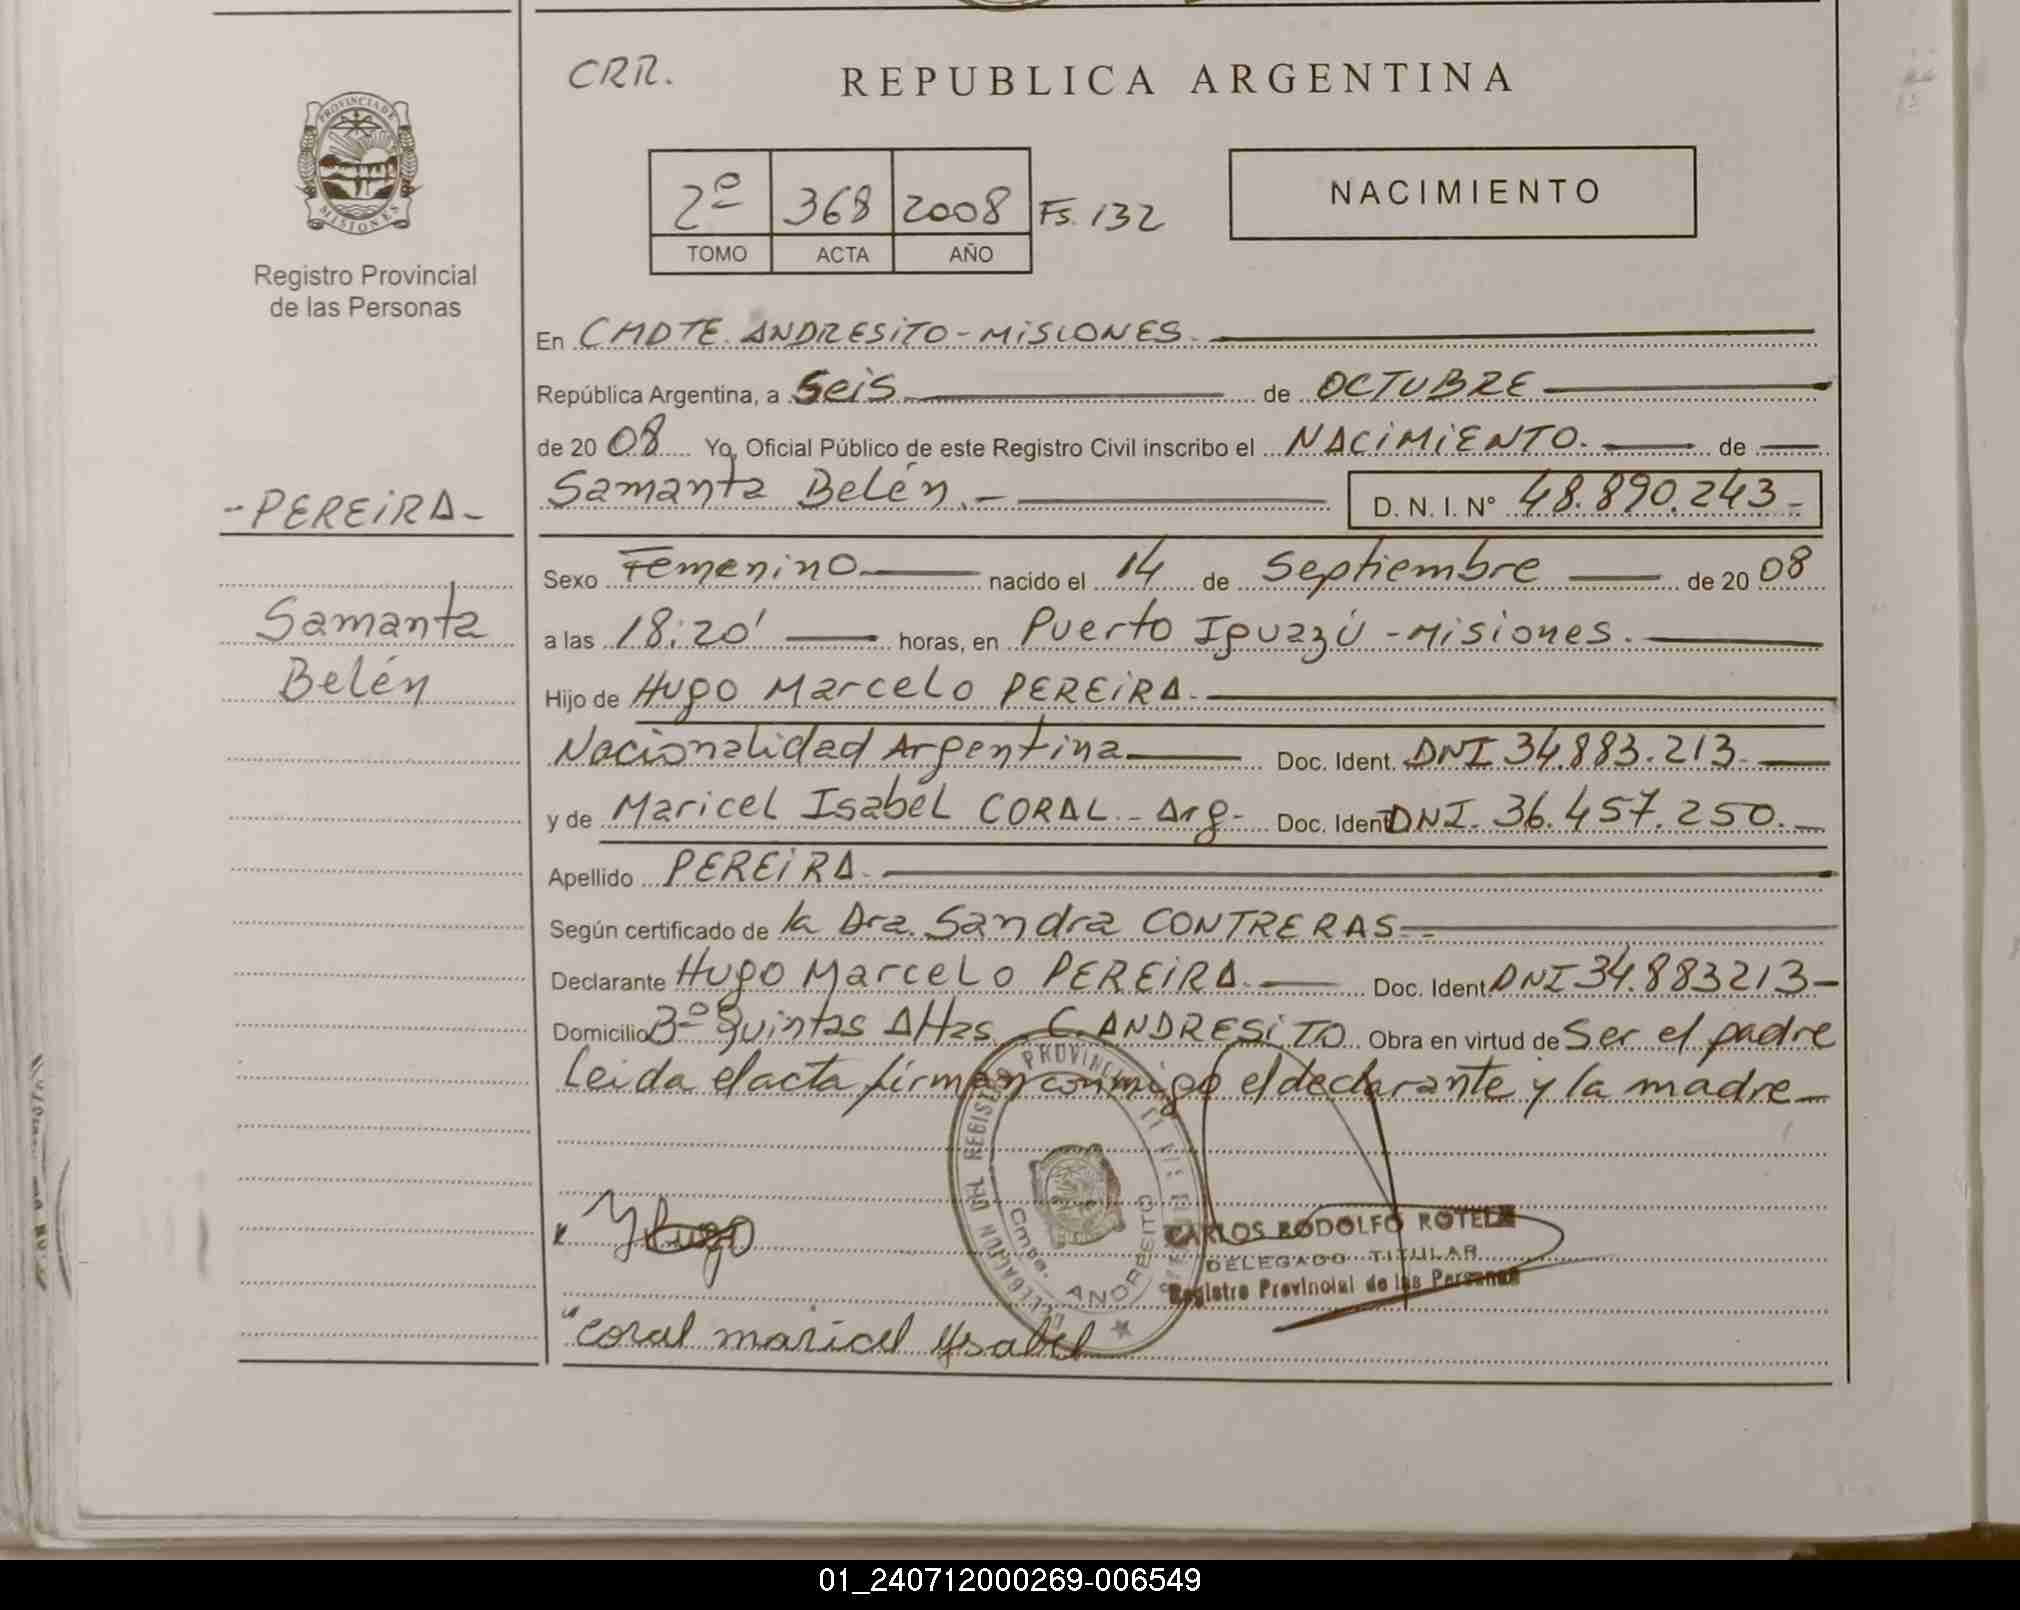 CRR.
REPUBLICA ARGENTINA
PROVINCIA DE
MISIONES
Registro Provincial
de las Personas
2º 368 2008 Fs. 132
TOMO ACTA AÑO
NACIMIENTO
En CMDTE. ANDRESITO - MISIONES.
República Argentina, a Seis de OCTUBRE
de 20 08 Yo, Oficial Público de este Registro Civil inscribo el NACIMIENTO. de
- PEREIRA -
Samanta Belén.- D. N. I. Nº 48.890.243-
Sexo Femenino nacido el 14 de Septiembre de 20 08
Samanta
a las 18:20' horas, en Puerto Iguazú - Misiones.
Belén
Hijo de Hugo Marcelo PEREIRA.
Nacionalidad Argentina Doc. Ident. DNI 34.883.213.
y de Maricel Isabel CORAL - Arg- Doc. Ident DNI. 36.457.250.
Apellido PEREIRA.
Según certificado de la Dra. Sandra CONTRERAS
Declarante Hugo Marcelo PEREIRA. Doc. Ident DNI 34.883213-
Domicilio 3º Quintas Altas C. ANDRESITO Obra en virtud de Ser el padre
Leida el acta firman conmigo el declarante y la madre
DELEGACION DEL REGISTRO PROVINCIAL
Cmo. ANDRESITO
Hugo
CARLOS RODOLFO ROTELA
DELEGADO TITULAR
Registro Provincial de las Personas
"Coral maricel Ysabel
01_240712000269-006549